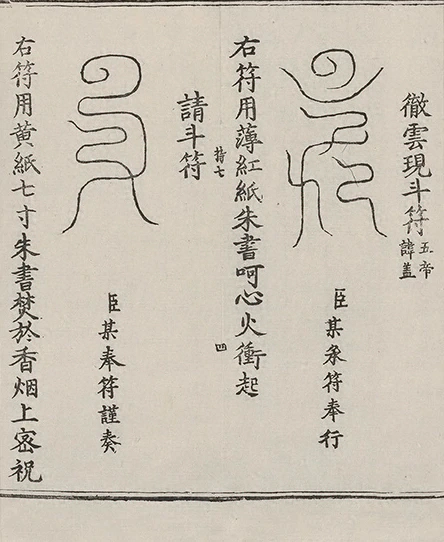 徹雲現斗符五帝諱蓋
臣某承符奉行
右符用薄紅紙朱書呵心火衝起
持七
四
請斗符
臣某奉符謹奏
右符用黄紙七寸朱書焚於香烟上密祝